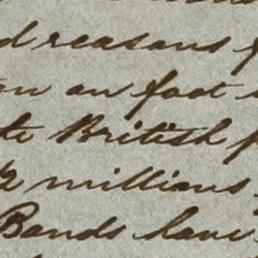 d reasons f
on an foot
te British p
2 millions
Bonds have